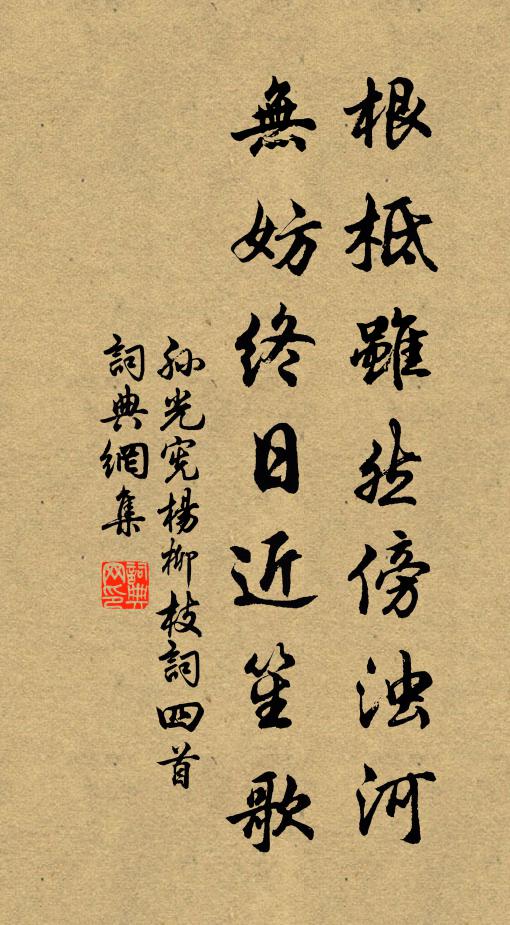 根柢雖然傍濁河
無妨終日近笙歌
孫光憲楊柳枝詞四首
詞典網集
詞典
网印